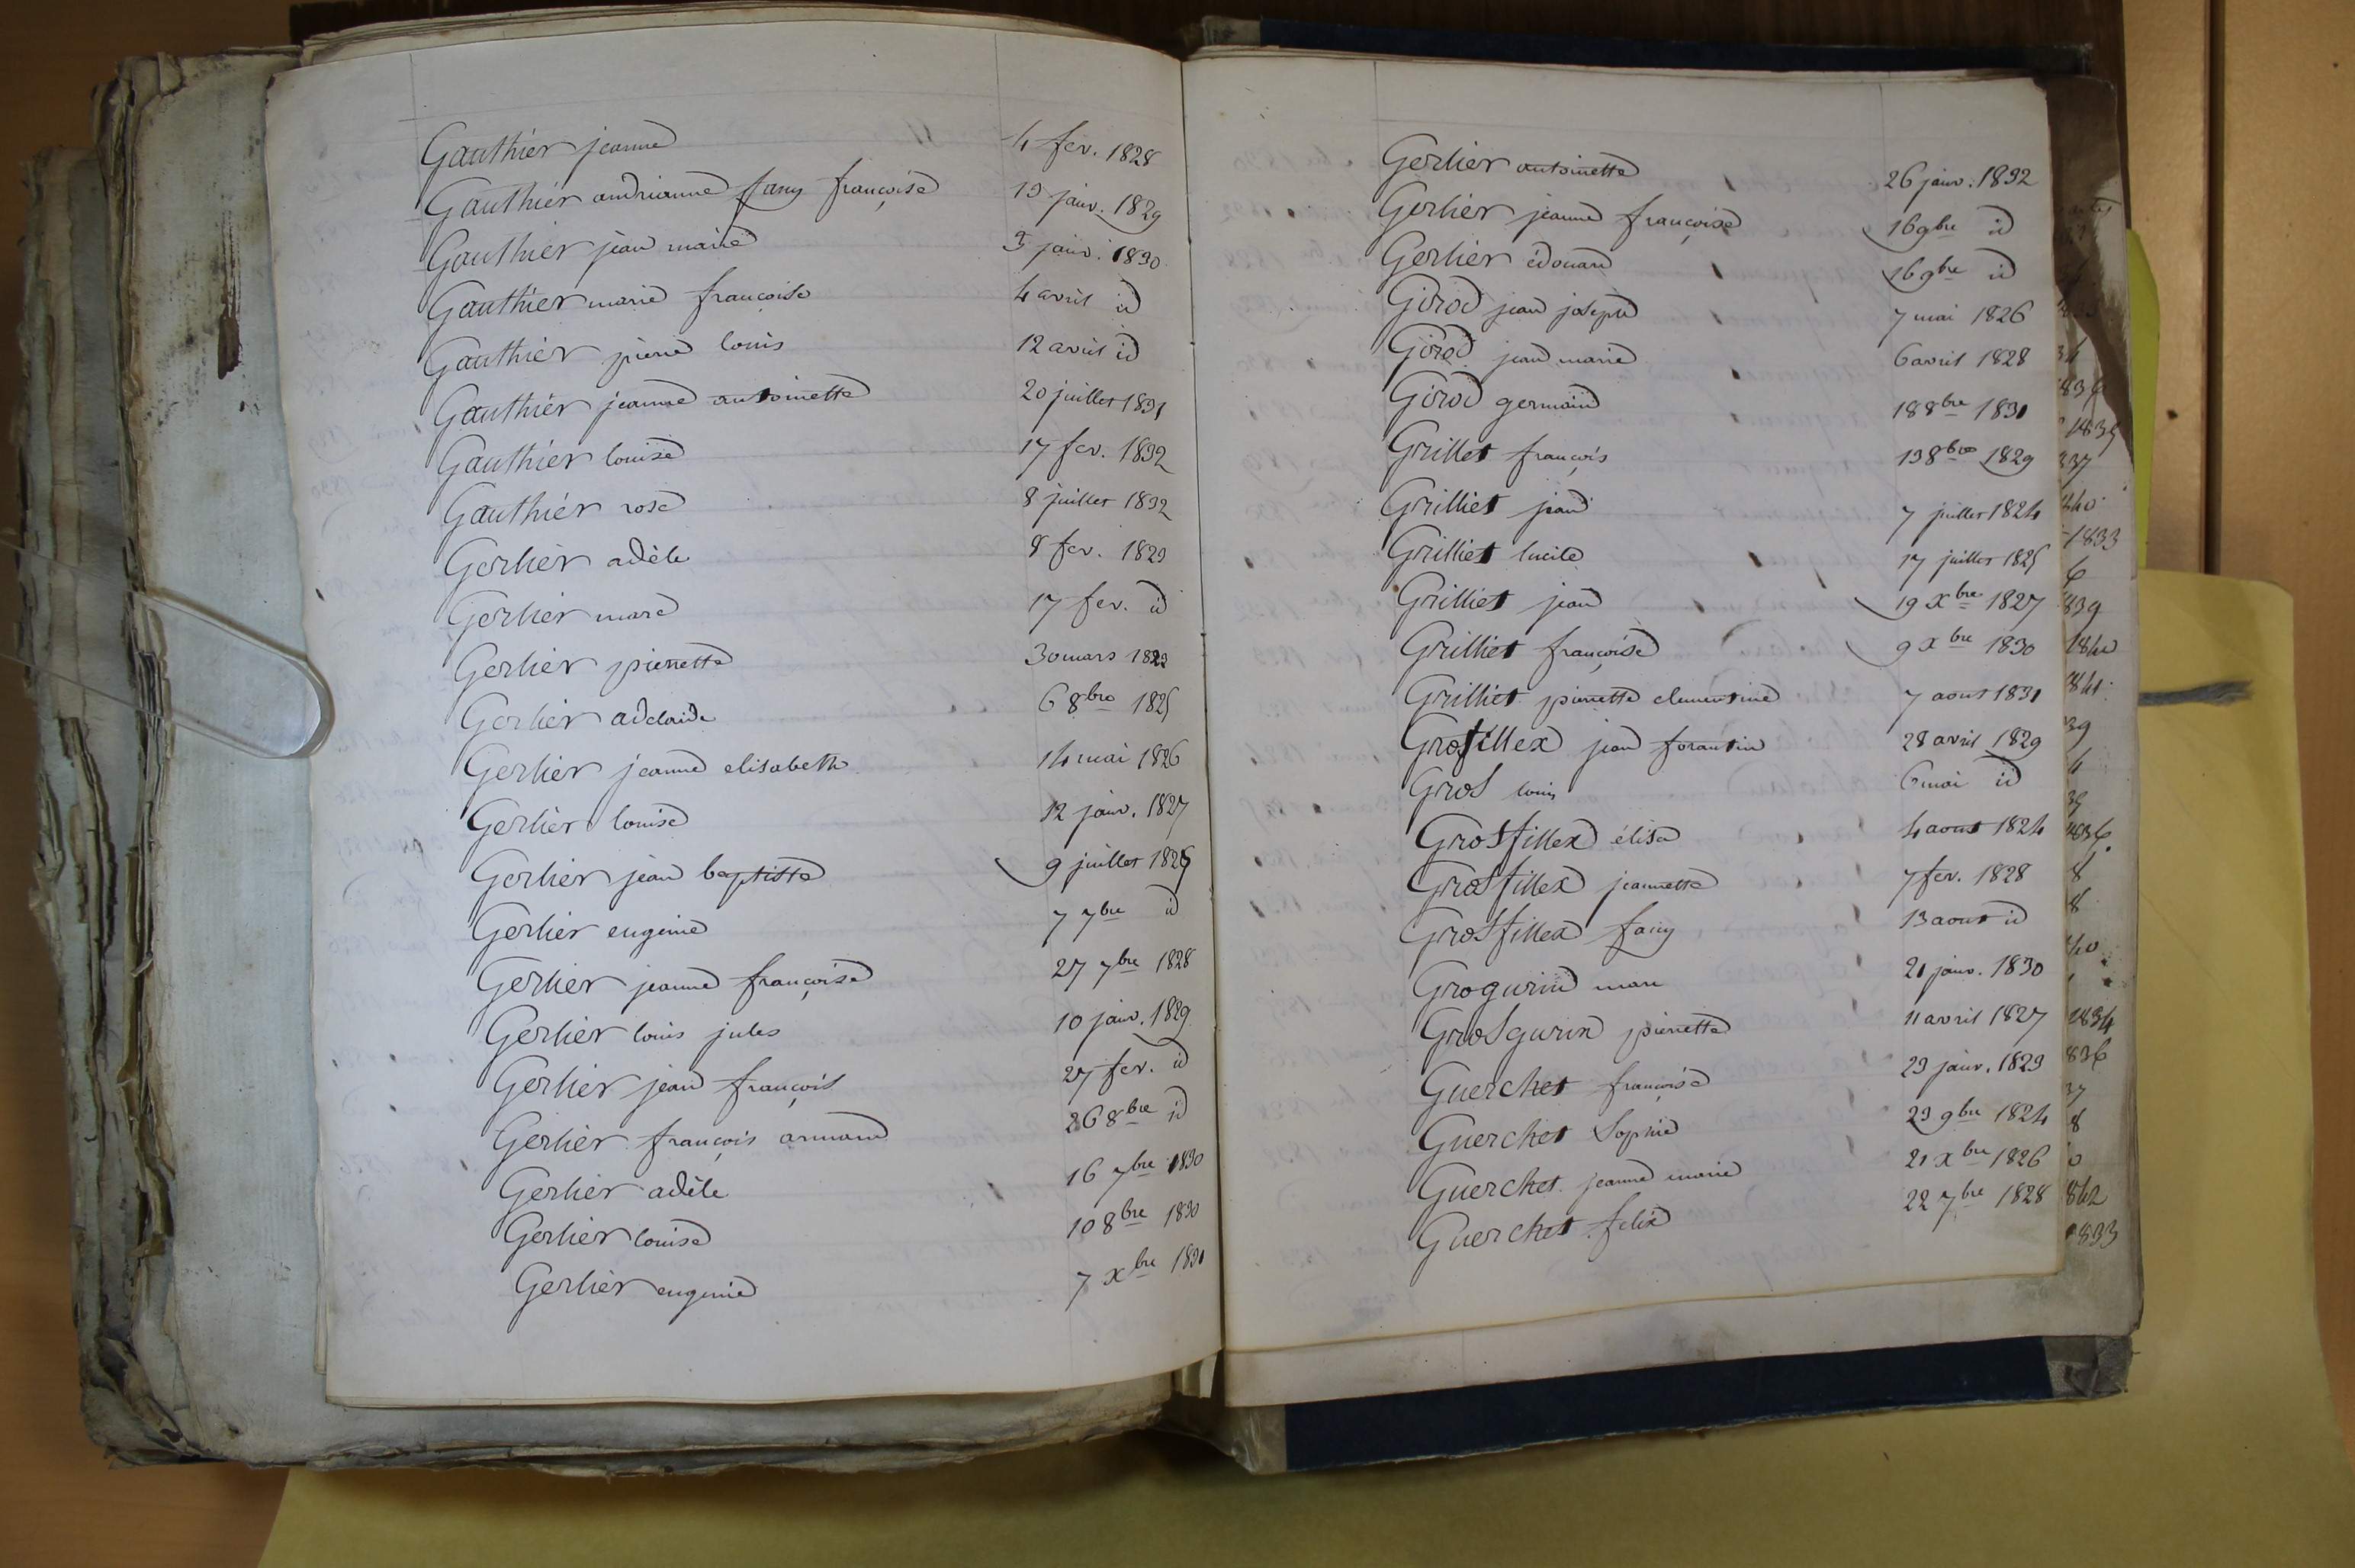 Gauthier jeanne 4 fev. 1828
Gauthier andrianne fany françoise 13 janv. 1829
Gauthier jean marie 3 janv. 1830
Gauthier marie francoise 4 avril id
Gauthier pierre louis 12 avril id
Gauthier jeanne antoinette 20 juillet 1831
Gauthier louise 17 fev. 1832
Gauthier rose 8 juillet 1832
Gerlier adèle 8 fev. 1823
Gerlier marie 17 fev. id
Gerlier pierrette 30 mars 1823
Gerlier adelaide 6 8bre 1825
Gerlier jeanne elisabeth 14 mai 1826
Gerlier louise 12 janv. 1827
Gerlier jean baptiste 9 juillet 1826
Gerlier eugenie 7 7bre id
Gerlier jeanne françoise 27 7bre 1828
Gerlier louis jules 10 janv. 1829
Gerlier jean françois 27 fev. id
Gerlier françois armand 26 8bre id
Gerlier adèle 16 7bre 1830
Gerlier louise 10 8bre 1830
Gerlier eugenie 7 xbre 1831
Gerlier antoinette 26 janv. 1832
Gerlier jeanne françoise 16 9bre id
Gerlier édouard 16 9bre id
Girod jean joseph 7 mai 1826
Girod jean marie 6 avril 1828
Girod germain 18 8bre 1831
Grillet françois 13 8bre 1829
Grilliet jean 7 juillet 1824
Grilliet lucile 17 juillet 1825
Grilliet jean 19 xbre 1827
Grilliet françoise 9 xbre 1830
Grilliet pierrette clementine 7 aout 1831
Grosfillex jean forantin 28 avril 1829
Gros louis 6 mai id
Grosfillex élisa 4 aout 1824
Grosfillex jeannette 7 fev. 1828
Grosfillex fany 13 aout id
Grogurin marie 21 janv. 1830
Grosgurin pierrette 11 avril 1827
Guerchet françoise 23 janv. 1823
Guerchet Sophie 23 9bre 1824
Guerchet jeanne marie 21 xbre 1826
Guerchet felix 22 7bre 1828